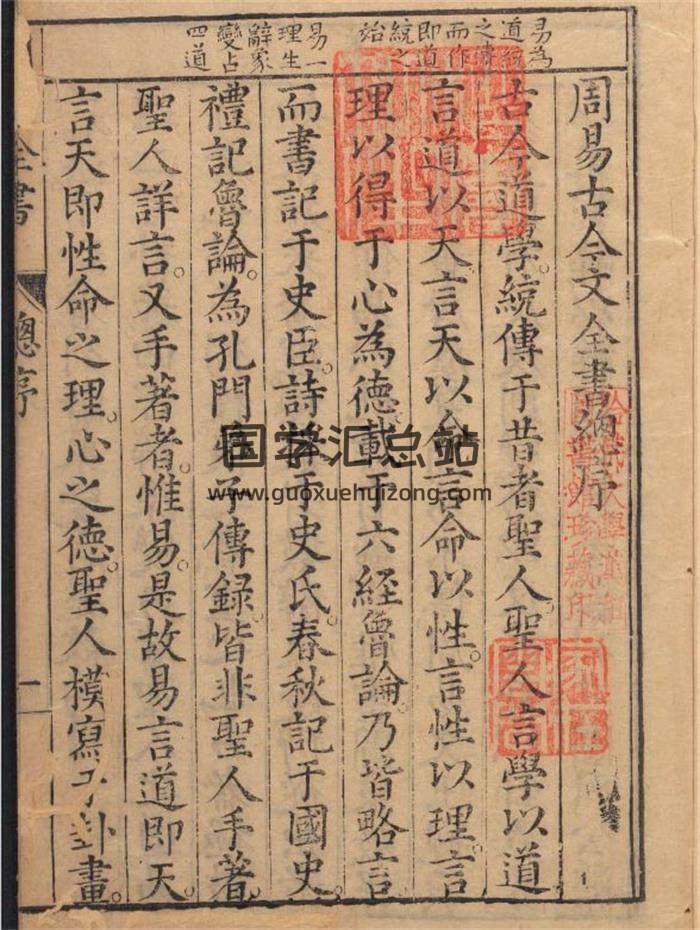 易為
道統
之傳
而作
即道
統之
始
易一
理生
辭象
變占
四道
周易古今文全書總序
古今道學統傳于昔者聖人聖人言學以道
言道以天言天以命言命以性言性以理言
理以得于心為德載于六經魯論乃皆略言
而書記于史臣詩採于史氏春秋記于國史
禮記魯論為孔門弟子傳錄皆非聖人手著
聖人詳言又手著者惟易是故易言道即天
言天即性命之理心之德聖人模寫于卦畫
全書
總序
一
国学汇总站
www.guoxuehuizong.com
1